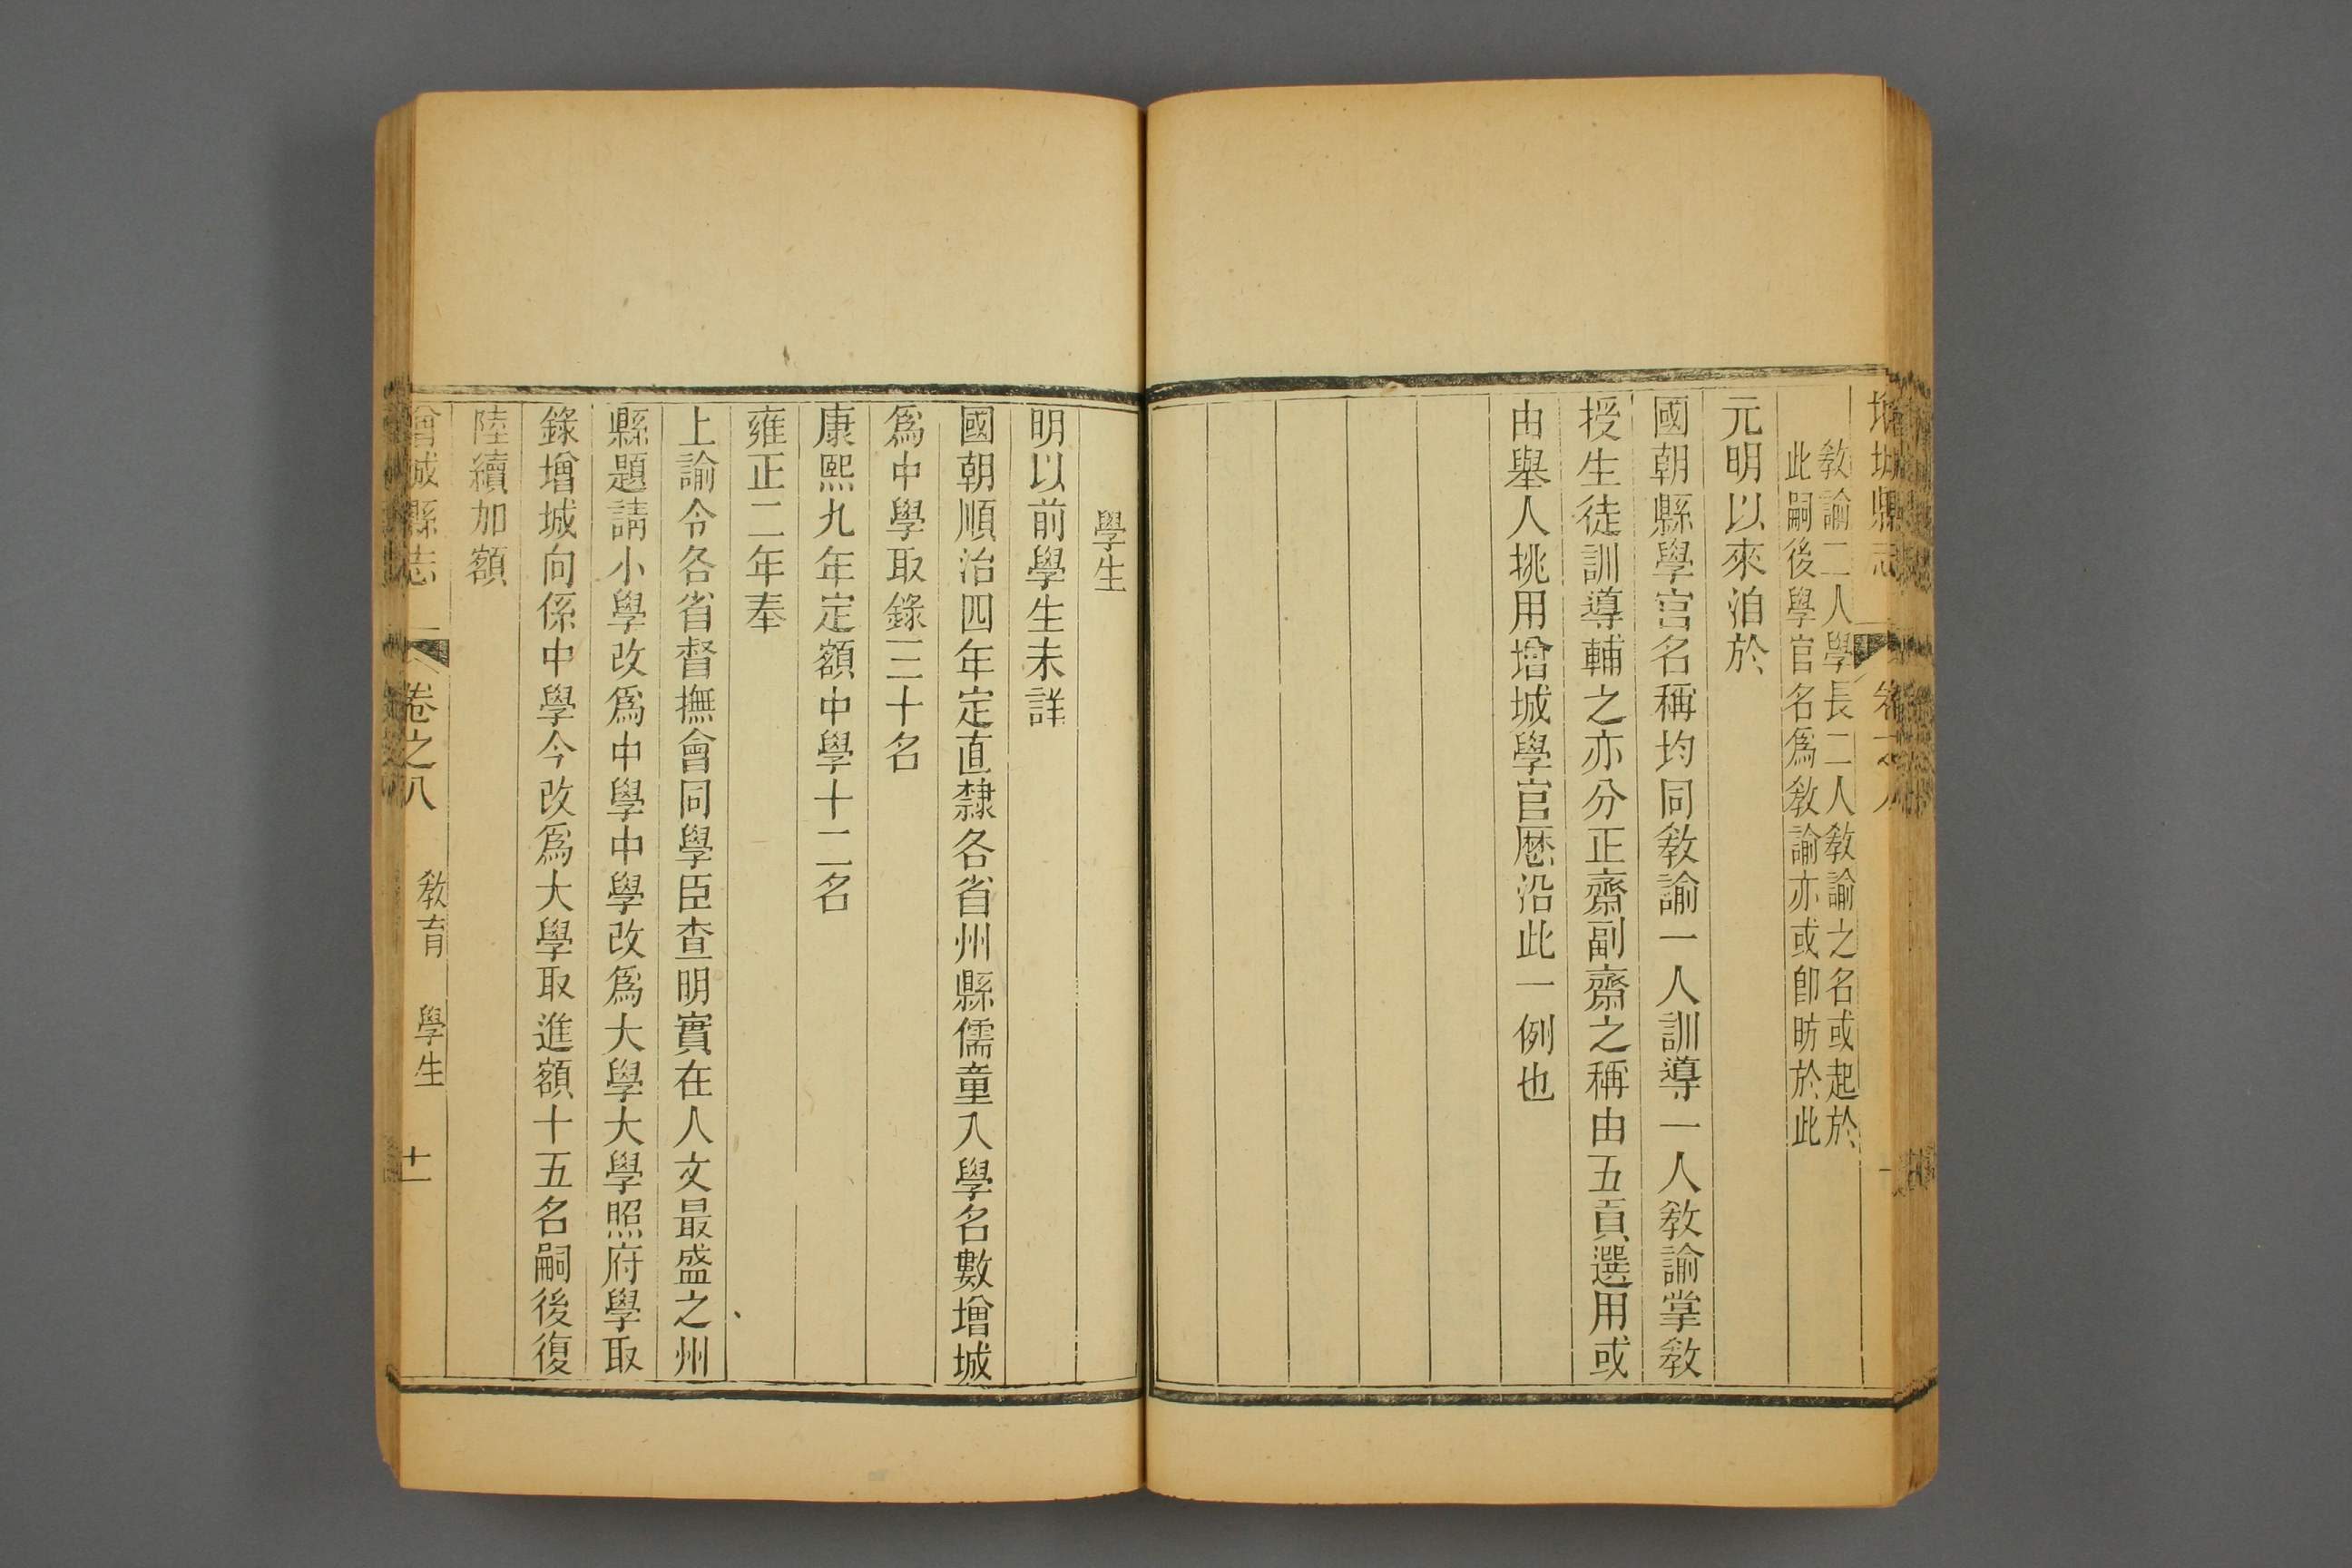 增城縣志
卷之八
教諭二人學長二人教諭之名或起於
此嗣後學官名爲教諭亦或卽昉於此
元明以來洎於
國朝縣學官名稱均同教諭一人訓導一人教諭掌教
授生徒訓導輔之亦分正齋副齋之稱由五貢選用或
由舉人挑用增城學官歷沿此一例也
學生
明以前學生未詳
國朝順治四年定直隸各省州縣儒童入學名數增城
爲中學取錄三十名
康熙九年定額中學十二名
雍正二年奉
上諭令各省督撫會同學臣查明實在人文最盛之州
縣題請小學改爲中學中學改爲大學大學照府學取
錄增城向係中學今改爲大學取進額十五名嗣後復
陸續加額
增城縣志
卷之八
教育
學生
十一